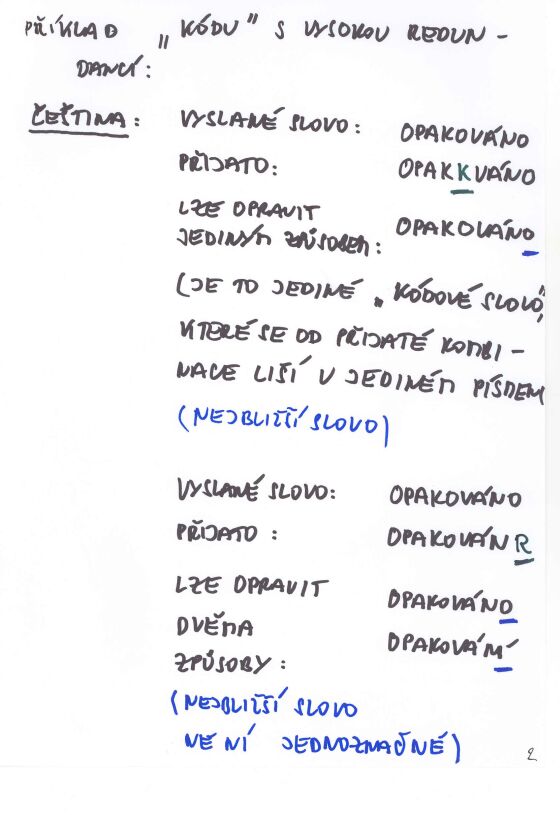 PŘÍKLAD „KÓDU" S VYSOKOU REDUN-
DANCÍ:
ČEŠTINA: VYSLANÉ SLOVO: OPAKOVÁNO
PŘIJATO: OPAKKVÁNO
LZE OPRAVIT
JEDINÝM ZPŮSOBEM: OPAKOVÁNO
(JE TO JEDINÉ „KÓDOVÉ SLOVO",
KTERÉ SE OD PŘIJATÉ KOMBI-
NACE LIŠÍ V JEDINÉM PÍSMENI
(NEJBLIŽŠÍ SLOVO)
VYSLANÉ SLOVO: OPAKOVÁNO
PŘIJATO: OPAKOVÁNR
LZE OPRAVIT OPAKOVÁNO
DVĚMA OPAKOVÁNÍ
ZPŮSOBY:
(NEJBLIŽŠÍ SLOVO
NENÍ JEDNOZNAČNÉ)
2